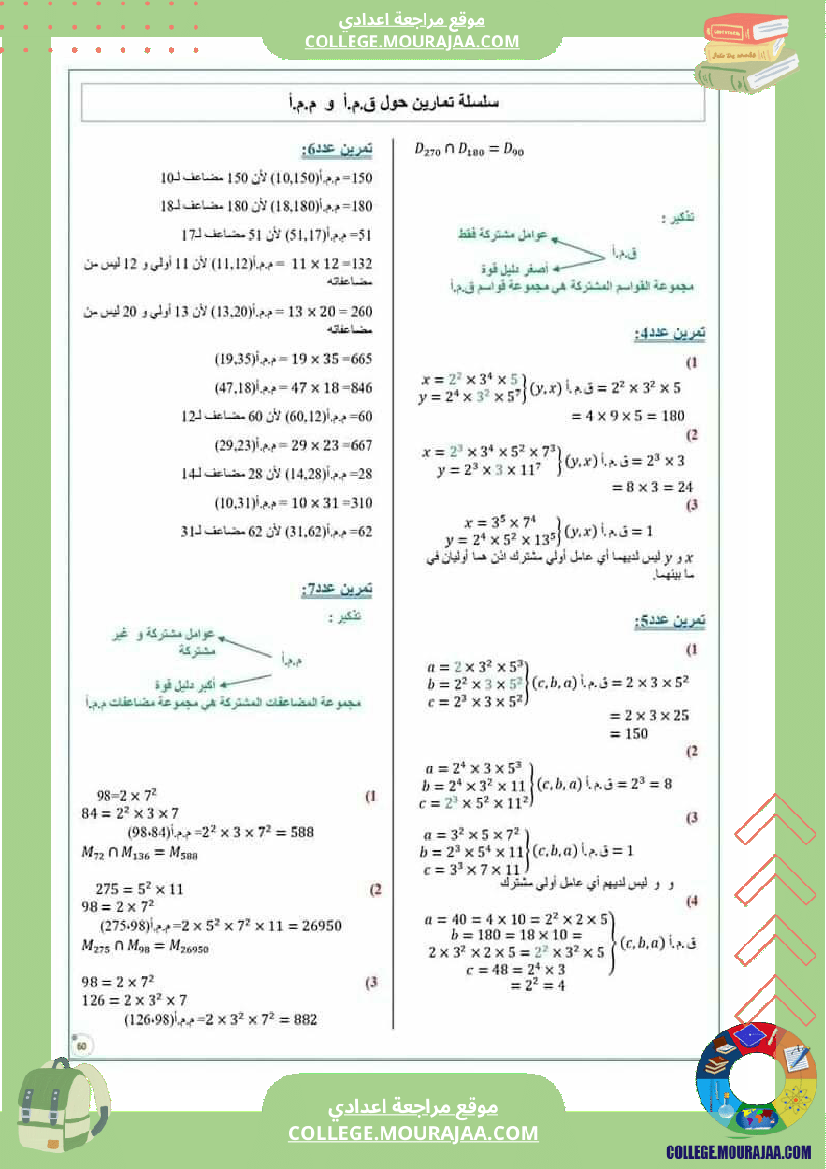 موقع مراجعة اعدادي
COLLEGE.MOURAJAA.COM
سلسلة تمارين حول ق.م.أ و م.م.أ
D₂₇₀ ∩ D₁₈₀ = D₉₀
تذكير :
عوامل مشتركة فقط
ق.م.أ
أصغر دليل قوة
مجموعة القواسم المشتركة هي مجموعة قواسم ق.م.أ
تمرين عدد4:
(1
x = 2² × 3⁴ × 5
y = 2⁴ × 3² × 5⁷} (y, x) ق.م.أ = 2² × 3² × 5
= 4 × 9 × 5 = 180
(2
x = 2³ × 3⁴ × 5² × 7³
y = 2³ × 3 × 11⁷} (y, x) ق.م.أ = 2³ × 3
= 8 × 3 = 24
(3
x = 3⁵ × 7⁴
y = 2⁴ × 5² × 13⁵} (y, x) ق.م.أ = 1
x و y ليس لديهما أي عامل أولي مشترك اذن هما أوليان في
ما بينهما.
تمرين عدد5:
(1
a = 2 × 3² × 5³
b = 2² × 3 × 5² } (c, b, a) ق.م.أ = 2 × 3 × 5²
c = 2³ × 3 × 5²
= 2 × 3 × 25
= 150
(2
a = 2⁴ × 3 × 5³
b = 2⁴ × 3² × 11 } (c, b, a) ق.م.أ = 2³ = 8
c = 2³ × 5² × 11²
(3
a = 3² × 5 × 7²
b = 2³ × 5⁴ × 11 } (c, b, a) ق.م.أ = 1
c = 3³ × 7 × 11
و و ليس لديهم أي عامل أولي مشترك
(4
a = 40 = 4 × 10 = 2² × 2 × 5
b = 180 = 18 × 10 =
2 × 3² × 2 × 5 = 2² × 3² × 5 } (c, b, a) ق.م.أ
c = 48 = 2⁴ × 3
= 2² = 4
تمرين عدد6:
150= م.م.أ(10,150) لأن 150 مضاعف لـ10
180= م.م.أ(18,180) لأن 180 مضاعف لـ18
51= م.م.أ(51,17) لأن 51 مضاعف لـ17
132= 12 × 11 = م.م.أ(11,12) لأن 11 أولي و 12 ليس من
مضاعفاته
260 = 20 × 13 = م.م.أ(13,20) لأن 13 أولي و 20 ليس من
مضاعفاته
665= 35 × 19 = م.م.أ(19,35)
846= 18 × 47 = م.م.أ(47,18)
60= م.م.أ(60,12) لأن 60 مضاعف لـ12
667= 23 × 29 = م.م.أ(29,23)
28= م.م.أ(14,28) لأن 28 مضاعف لـ14
310= 31 × 10 = م.م.أ(10,31)
62= م.م.أ(31,62) لأن 62 مضاعف لـ31
تمرين عدد7:
تذكير :
عوامل مشتركة و غير
مشتركة
م.م.أ
أكبر دليل قوة
مجموعة المضاعفات المشتركة هي مجموعة مضاعفات م.م.أ
(1 98=2 × 7²
84 = 2² × 3 × 7
م.م.أ(98،84) =2² × 3 × 7² = 588
M₇₂ ∩ M₁₃₆ = M₅₈₈
(2 275 = 5² × 11
98 = 2 × 7²
م.م.أ(275،98) =2 × 5² × 7² × 11 = 26950
M₂₇₅ ∩ M₉₈ = M₂₆₉₅₀
(3 98 = 2 × 7²
126 = 2 × 3² × 7
م.م.أ(126،98) =2 × 3² × 7² = 882
60
موقع مراجعة اعدادي
COLLEGE.MOURAJAA.COM
COLLEGE.MOURAJAA.COM